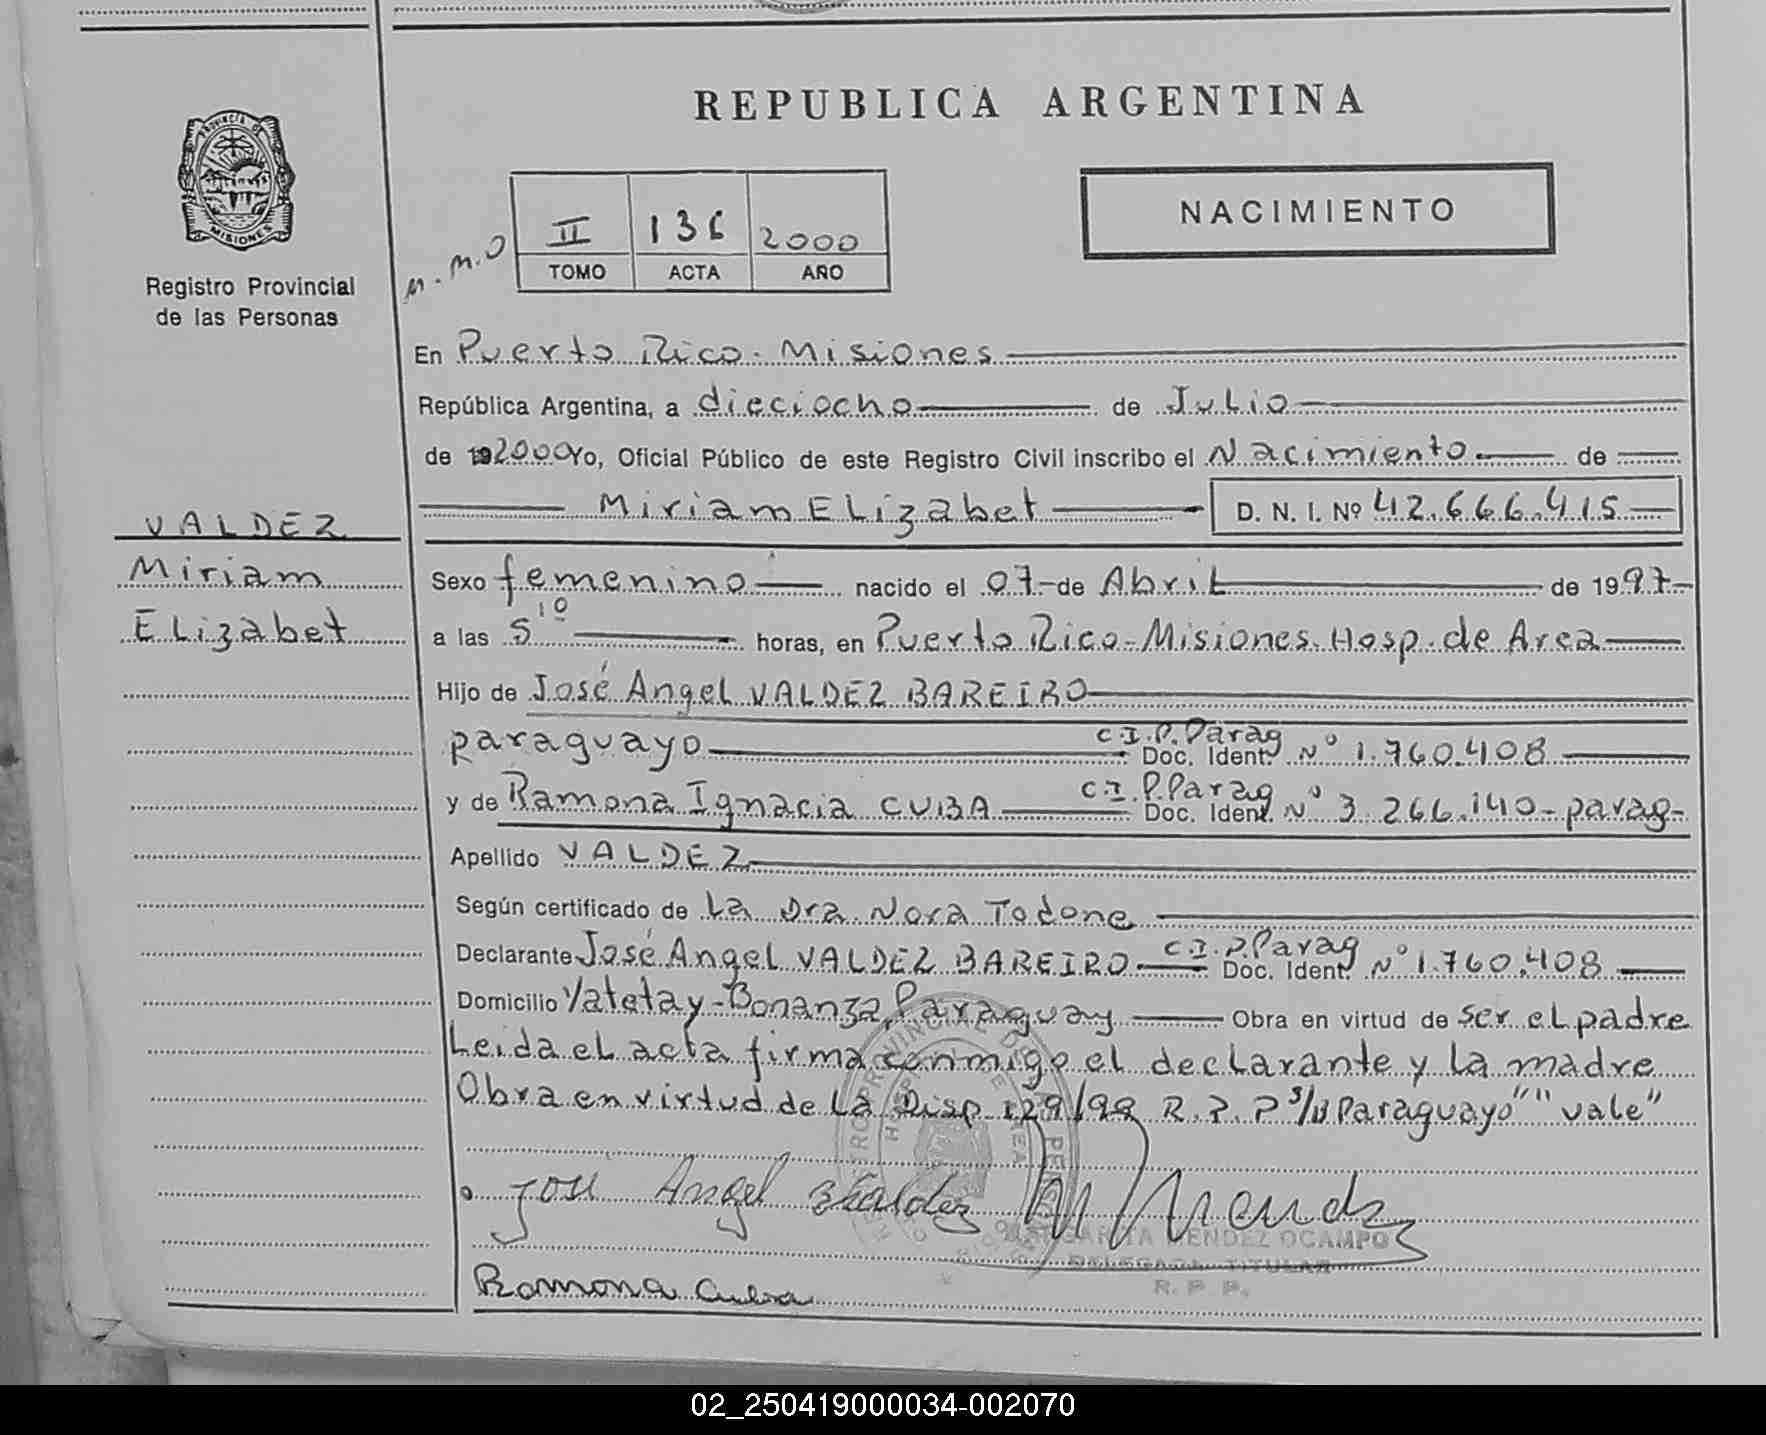 REPUBLICA ARGENTINA
PROVINCIA DE
MISIONES
Registro Provincial
de las Personas
NACIMIENTO
II 136 2000
TOMO ACTA AÑO
M.M.O
En Puerto Rico. Misiones
República Argentina, a dieciocho de Julio
de 192000 Yo, Oficial Público de este Registro Civil inscribo el Nacimiento de
Miriam ELizabet D. N. I. Nº 42.666.415
VALDEZ
Miriam
ELizabet
Sexo femenino nacido el 07 de AbriL de 1997
a las 5 10 horas, en Puerto Rico-Misiones. Hosp. de Area
Hijo de José AngeL VALDEZ BAREIRO
paraguayo C.I.P.Parag Doc. Ident. Nº 1.760.408
y de Ramona Ignacia CUBA C.I.P.Parag Doc. Ident. Nº 3.266.140-parag-
Apellido VALDEZ
Según certificado de La Dra Nora Todone
Declarante José AngeL VALDEZ BAREIRO C.I.P.Parag Doc. Ident. Nº 1.760.408
Domicilio Yatetay-Bonanza, Paraguay Obra en virtud de ser eL padre
Leida eL acta firma conmigo el decLarante y La madre
Obra en virtud de La Disp 129/99 R.P.P S/B Paraguayo" "vale"
José Angel Valdez
MARGARITA MENDEZ OCAMPO
DELEGADA TITULAR
R. P. P.
Ramona Cuba
02_250419000034-002070